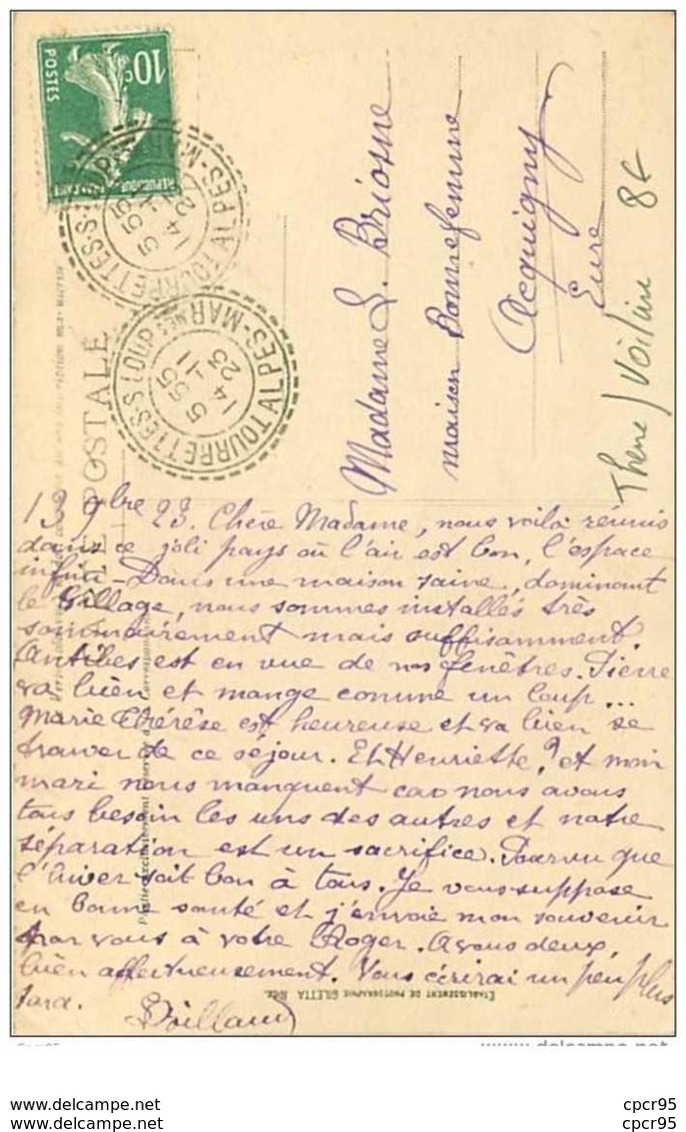 10c
POSTES
TOURRETTES-S-LOUP
ALPES-MARNES
5 55
14-11
23
CARTE POSTALE
Madame L. Briosne
maison Bonnefemme
Acquigny
Eure
8€
13 9bre 23. Chère Madame, nous voilà réunis
dans ce joli pays où l'air est bon, l'espace
infini - Dans une maison saine, dominant
le Village, nous sommes installés très
sommairement mais suffisamment.
Antibes est en vue de nos fenêtres. Pierre
va bien et mange comme un loup...
Marie Thérèse est heureuse et va bien se
trouver de ce séjour. Et Henriette ? et mon
mari nous manquent car nous avons
tous besoin les uns des autres et notre
séparation est un sacrifice. Pourvu que
l'hiver soit bon à tous. Je vous suppose
en bonne santé et j'envoie mon souvenir
par vous à votre Roger. A vous deux,
bien affectueusement. Vous écrirai un peu plus
tard.
ETABLISSEMENT DE PHOTOGRAPHIE GILETTA NICE.
www.delcampe.net
cpcr95
cpcr95
cpcr95
cpcr95